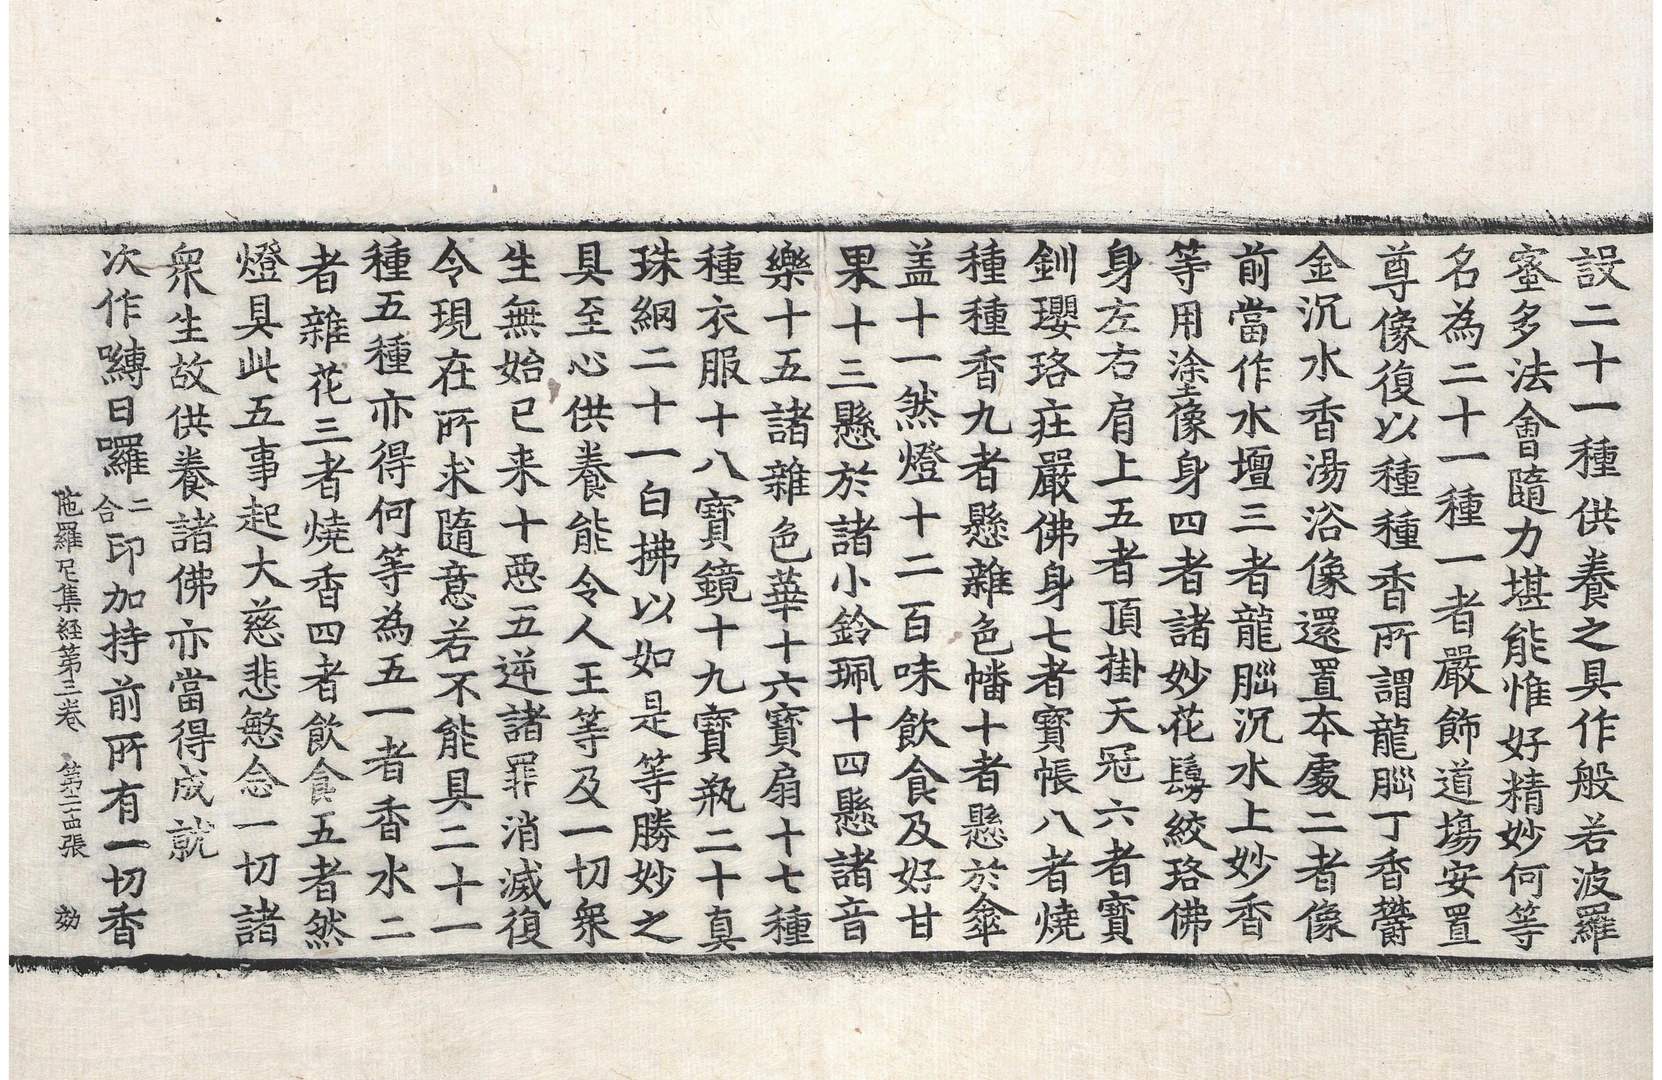 設二十一種供養之具作般若波羅
蜜多法會隨力堪能惟好精妙何等
名為二十一種一者嚴飾道場安置
尊像復以種種香所謂龍腦丁香欝
金沉水香湯浴像還置本處二者像
前當作水壇三者龍腦沉水上妙香
等用塗像身四者諸妙花鬘絞珞佛
身左右肩上五者頂掛天冠六者寶
釧瓔珞庄嚴佛身七者寶帳八者燒
種種香九者懸雜色幡十者懸於傘
盖十一然燈十二百味飲食及好甘
果十三懸於諸小鈴珮十四懸諸音
樂十五諸雜色華十六寶扇十七種
種衣服十八寶鏡十九寶瓶二十真
珠網二十一白拂以如是等勝妙之
具至心供養能令人王等及一切衆
生無始已来十惡五逆諸罪消滅復
令現在所求隨意若不能具二十一
種五種亦得何等為五一者香水二
者雜花三者燒香四者飲食五者然
燈具此五事起大慈悲愍念一切諸
衆生故供養諸佛亦當得成就
次作嚩日囉二合印加持前所有一切香
陁羅尼集経第三卷 第二十四張